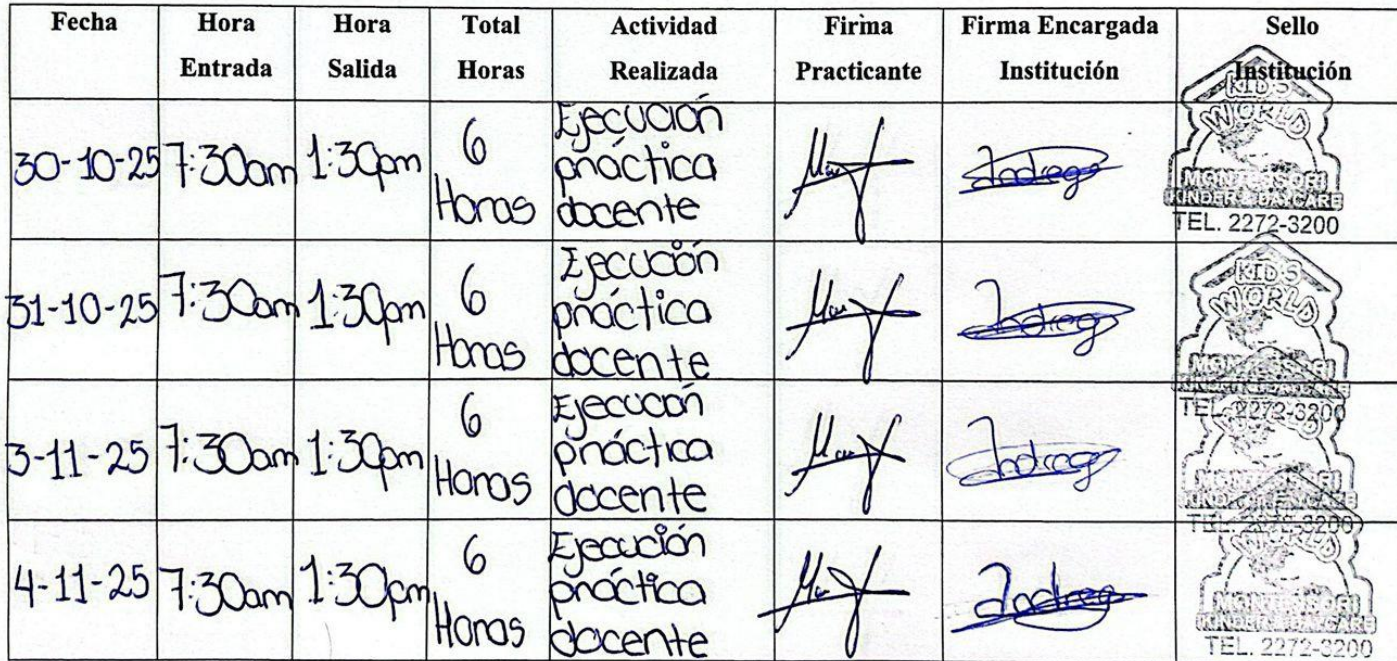 Fecha Hora Entrada Hora Salida Total Horas Actividad Realizada Firma Practicante Firma Encargada Institución Sello Institución
30-10-25 7:30am 1:30pm 6 Horas Ejecución práctica docente
KID'S
WORLD
MONTESSORI
KINDER & DAYCARE
TEL. 2272-3200
31-10-25 7:30am 1:30pm 6 Horas Ejecución práctica docente
KID'S
WORLD
MONTESSORI
KINDER & DAYCARE
TEL. 2272-3200
3-11-25 7:30am 1:30pm 6 Horas Ejecucón práctica docente
MONTESSORI
KINDER & DAYCARE
TEL. 2272-3200
4-11-25 7:30am 1:30pm 6 Horas Ejecución práctica docente
WORLD
MONTESSORI
KINDER & DAYCARE
TEL. 2272-3200